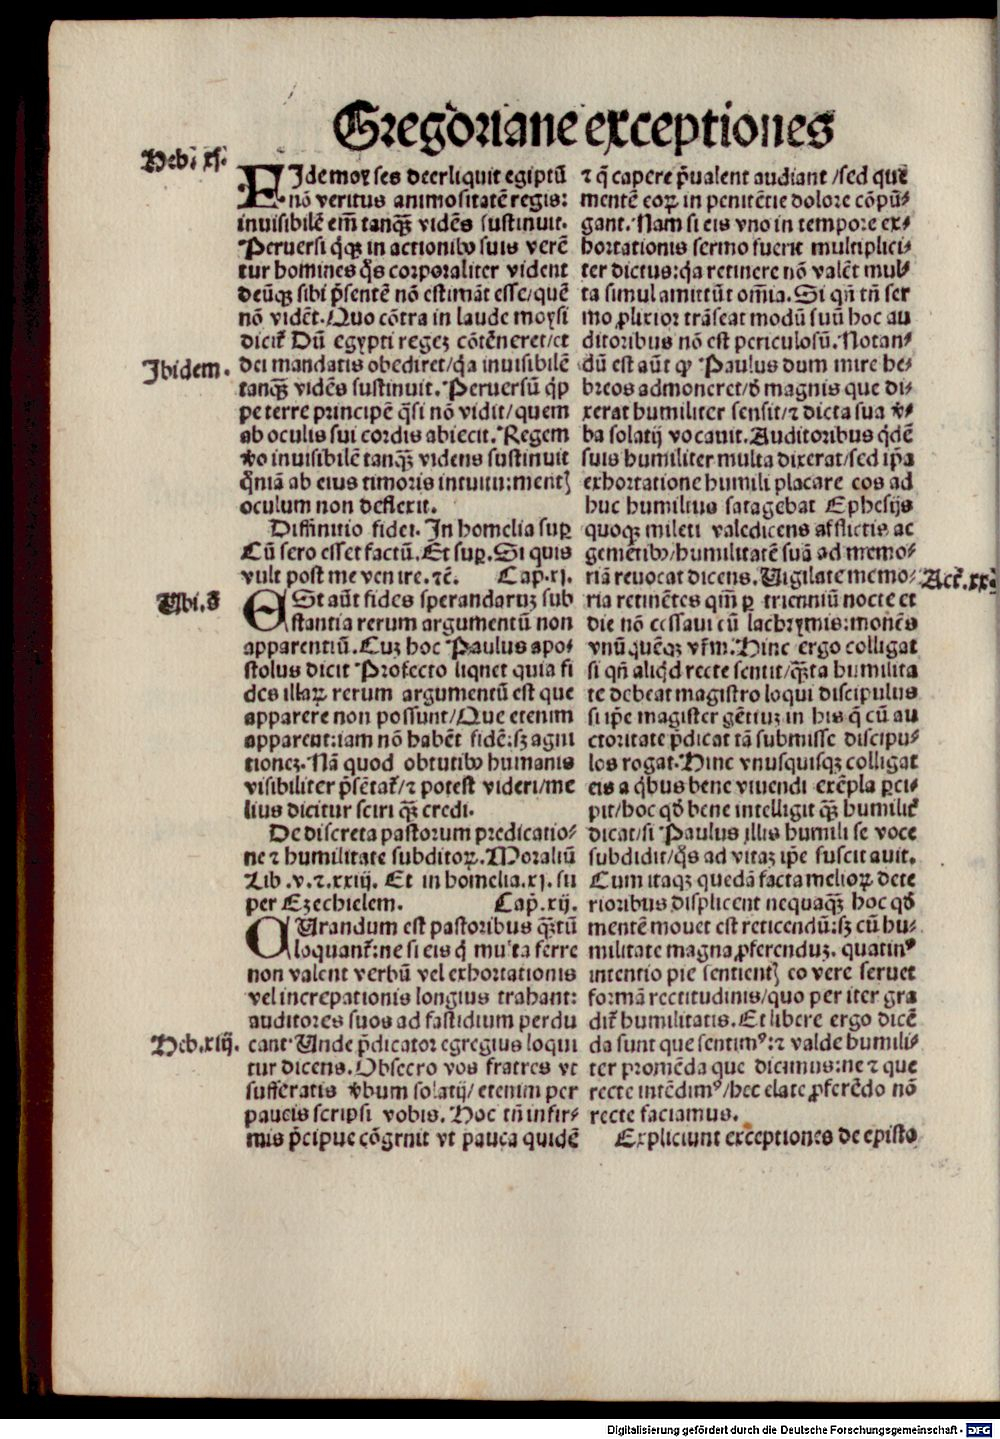 Gregoriane exceptiones
Heb. xj.
FIde moyses dereliquit egiptū
nō veritus animositatē regis:
inuisibilē em̄ tanqȝ̄ vidēs sustinuit.
Peruersi qͥqȝ in actionibꝰ suis verē
tur homines qͦs corporaliter vident
deūqȝ sibi p̄sentē nō estimāt esse/quē
nō vidēt. Quo cōtra in laude moysi
dicit᷑ Dū egypti regeȝ cōtēneret/et
Ibidem.
dei mandatis obediret/qͥa inuisibilē
tanqȝ̄ vidēs sustinuit. Peruersū qͥp
pe terre principē qͣsi nō vidit/quem
ab oculis sui cordis abiecit. Regem
v̓o inuisibilē tanqȝ̄ videns sustinuit
qm̄iā ab eius timoris intuitu: mentꝭ
oculum non deflexit.
Diffinitio fidei. In homelia suꝑ
Cū sero esset factū. Et suꝑ. Si quis
vult post me venire. ⁊ē. Cap. xj.
Ubi. s̄
ESt aūt fides sperandaruȝ sub
stantia rerum argumentū non
apparentiū. Cuȝ hoc Paulus apo-
stolus dicit Profecto liqnet quia fi
des illaꝝ rerum argumentū est que
apparere non possunt/Que etenim
apparent: iam nō habēt fidē: sȝ agni
tioneȝ. Nā quod obtutibꝰ humanis
visibiliter p̄sētat᷑/⁊ potest videri/me
lius dicitur sciri qȝ̄ credi.
De discreta pastorum predicatio-
ne ⁊ humilitate subditoꝝ. Moraliū
Lib. v. ⁊. xxiij. Et in homelia. xj. su
per Ezechielem. Cap̄. xij.
CUrandum est pastoribus qȝ̄tū
loquant᷑: ne si eis qͥ multa ferre
non valent verbū vel exhortationis
vel increpationis longius trahant:
auditores suos ad fastidium perdu
Heb. xiij.
cant Unde p̄dicator egregius loqui
tur dicens. Obsecro vos fratres vt
sufferatis v̓bum solatij/etenim per
paucis scripsi vobis. Hoc tn̄ infir-
mis p̄cipue cōgrnit vt pauca quidē
⁊ q̄ capere p̄ualent audiant/sed que
mentē eoꝝ in penitētie dolore cōpū-
gant. Nam si eis vno in tempore ex-
hortationis sermo fuerit multiplici-
ter dictus: qͥa retinere nō valēt mul-
ta simul amittūt om̄ia. Si qn̄ tn̄ ser
mo ꝓlixior trāseat modū suū hoc au
ditoribus nō est periculosū. Notan-
dū est aūt ꝙ Paulus dum mire he-
breos admoneret/ de magnis que di-
xerat humiliter sensit/⁊ dicta sua v̓-
ba solatij vocauit. Auditoribus qͥdē
suis humiliter multa dixerat/sed ip̄a
exhortatione humili placare eos ad
huc humilius satagebat Ephesijs
quoqȝ mileti valedicens afflictis ac
gemētibꝰ/humilitatē suā ad memo-
riā reuocat dicens. Uigilate memo-
Act᷑. xx.
ria retinētes qm̄ ꝑ trienniū nocte et
die nō cessaui cū lachrymis: monēs
vnū quēqȝ vr̄m. Hinc ergo colligat
si qn̄ aliqͥd recte sentit/qȝ̄ta humilita
te debeat magistro loqui discipulus
si ip̄e magister gētiuȝ in his q̄ cū au
ctoritate p̄dicat tā submisse discipu-
los rogat. Hinc vnusquisqȝ colligat
eis a qͥbus bene viuendi exēpla ꝑci-
pit/hoc qd̓ bene intelligit qȝ̄ humilit᷑
dicat/si Paulus illis humili se voce
subdidit/qͦs ad vitaȝ ip̄e suscitauit.
Cum itaqȝ quedā facta melioꝝ dete
rioribus displicent nequaqȝ̄ hoc qd̓
mentē mouet est reticendū: sȝ cū hu-
militate magna ꝓferenduȝ. quatinꝰ
intentio pie sentientꝭ eo vere seruet
formā rectitudinis/quo per iter gra
dit᷑ humilitatis. Et libere ergo dicē
da sunt que sentimꝰ: ⁊ valde humili-
ter promēda que dicimus: ne ⁊ que
recte intēdimꝰ/hec elate ꝓferēdo nō
recte faciamus.
Expliciunt exceptiones de episto
Digitalisierung gefördert durch die Deutsche Forschungsgemeinschaft - DFG